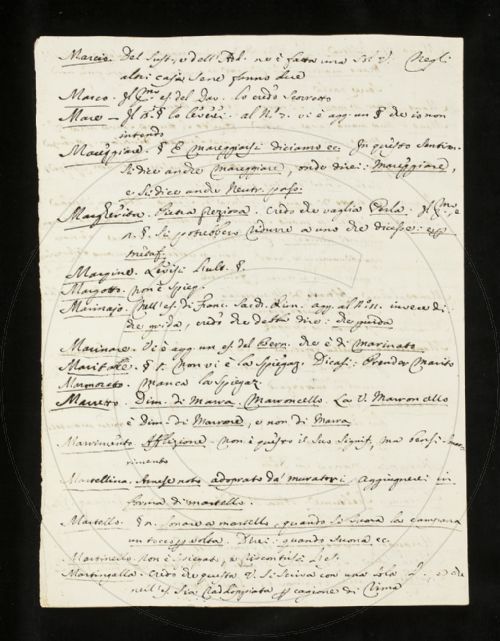 Marcio. Del Sust. e dell' Ad. ne è fatta una Sol V. Negl'
altri casi Sene fanno due
Marco. Il pmo es. del Dav. lo credo scorretto
Mare - Il §. lo leverei. al N. 7. vi è agg. un § che io non
intendo
Mareggiare. § E mareggiarsi diciamo ec. In questo Sentim.
Si dice anche mareggiare, onde direi: Mareggiare,
e Si dice anche Neutr. pass.
Margherita. Pietra preziosa. Credo che vaglia Perla. Il pmo, e
n. §. Si potrebbero ridurre a uno che dicesse:
metaf.
Margine. Levisi l'ult. §.
Margotto. non è Spieg.
Marinajo. Nell' es. di Franc. Sacch. Rim. agg. al N. 11. invece di:
che grida, credo che debba dire: che guida
Marinare. Vi è agg. un es. del Bern. che è di Marinato
Maritale. § 1. Non vi è la Spiegaz. Dicasi: Prender Marito
Marmorato. Manca la Spiegaz.
Marrone. Dim. di Marra. Marroncello. La V. Marroncello
è dim. di Marrone, e non di Marra
Marrimento. Afflizione. Non è questo il Suo Signif., ma bensì
rimento
Martellina. Arnese noto adoprato da' muratori. Aggiugnerei in
forma di martello.
Martello. § n. Sonare a martello, quando Si Suona la campana
un tocco p volta. Direi: quando Suona ec.
Martinello. Non è Spiegato, e
Martingalla. Credo che questa V. Si Scriva con una Sola L., e che
nell' es. Sia raddoppiata p cagione di rima